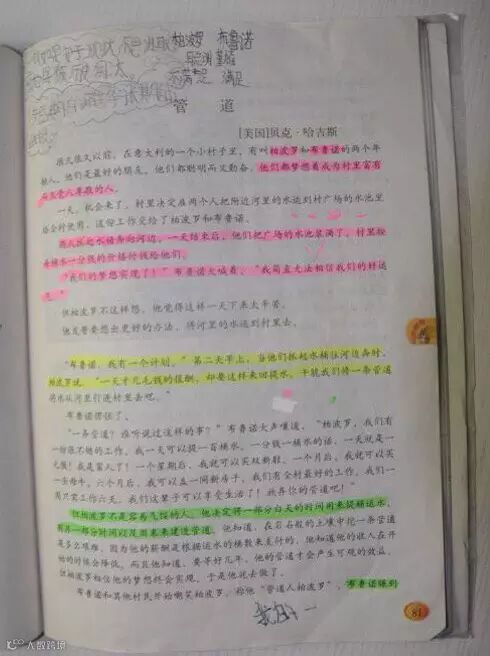 柏波罗 布鲁诺
聪明 勤奋
不满足 满足
管 道
[美国]贝克·哈吉斯
很久很久以前，在意大利的一个小村子里，有叫柏波罗和布鲁诺的两个年
轻人，他们是最好的朋友。他们都聪明而又勤奋，他们都梦想着成为村里富有
而且受人尊敬的人。
一天，机会来了，村里决定雇两个人把附近河里的水运到村广场的水池里
给全村使用。这份工作交给了柏波罗和布鲁诺。
两人抓起水桶奔向河边，一天结束后，他们把广场的水池装满了，村里按
每桶水一分钱的价格付钱给他们。
“我们的梦想实现了！”布鲁诺大喊着，“我简直无法相信我们的好运
气。”
但柏波罗不这样想，他觉得这样一天下来太辛苦。
他发誓要想出更好的办法，将河里的水运到村里去。
“布鲁诺，我有一个计划，”第二天早上，当他们抓起水桶往河边奔时，
柏波罗说，“一天才几毛钱的报酬，却要这样来回提水，干脆我们修一条管道
将水从河里引进村里去吧。”
布鲁诺愣住了。
“一条管道？谁听说过这样的事？”布鲁诺大声嚷道，“柏波罗，我们有
一份很不错的工作。我一天可以提一百桶水，一分钱一桶水的话，一天就是一
元钱！我是富人了！一个星期后，我就可以买双新鞋，一个月后，我就可以买
一头母牛，六个月后，我可以盖一间新房子，我们有全村最好的工作，我们一
周只需工作六天，我们这辈子可以享受生活了！放弃你的管道吧！”
但柏波罗不是容易气馁的人，他决定将一部分白天的时间用来提桶运水，
用另一部分时间以及周末来建造管道。他知道，在岩石般的土壤中挖一条管道
是多么艰难，因为他的薪酬是根据运水的桶数来支付的，他知道他的收入在开
始的时候会降低，而且他知道，要等好几年，他的管道才会产生可观的效益，
但柏波罗相信他的梦想终会实现，于是他就去做了。
布鲁诺和其他村民开始嘲笑柏波罗，称他“管道人柏波罗”，布鲁诺赚到
81
大数跨境